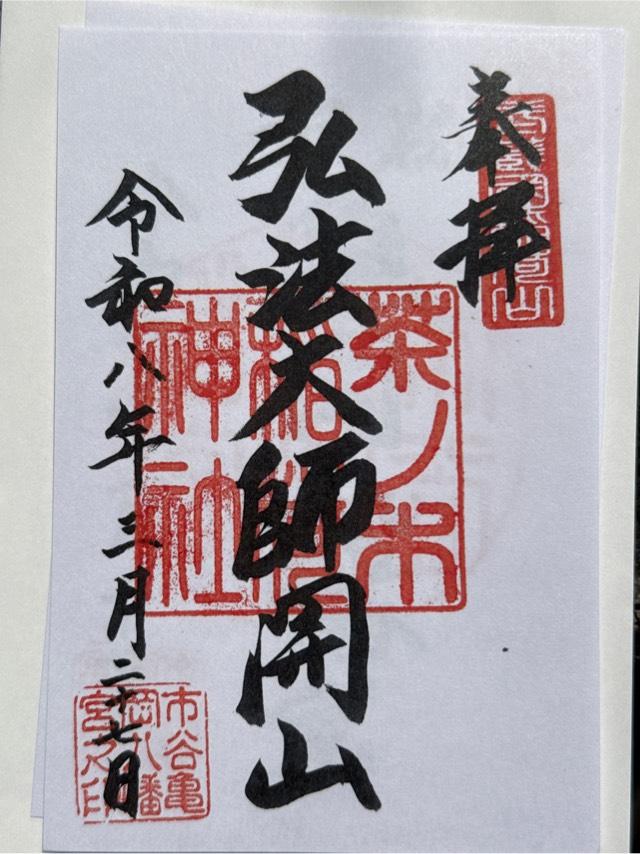 奉拝
弘法大師開山
茶ノ木
稲荷
神社
令和八年三月二十七日
市谷亀
岡八幡
宮乃印